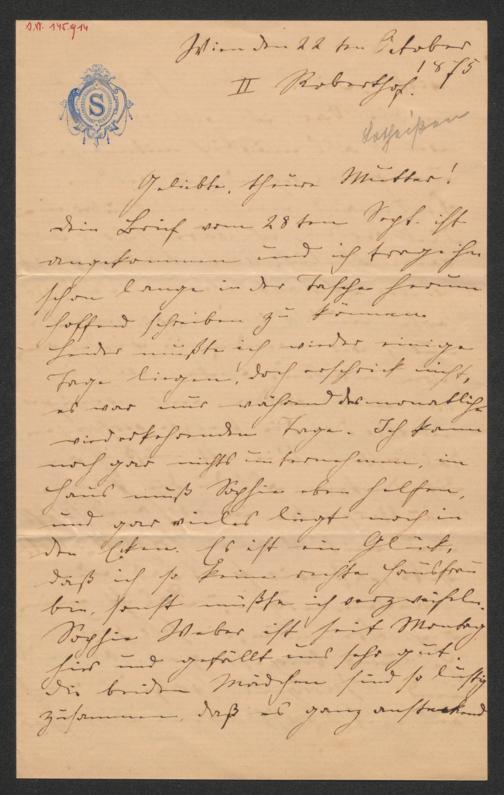 I.N. 145.914
Wien den 22 ten October
1875
II Roberthof.
Lotheißen
S
Geliebte, theure Mutter!
Dein Brief vom 28 ten Sept. ist
angekommen und ich trage ihn
schon lange in der Tasche herum
hoffend schreiben zu können.
Leider mußte ich wieder einige
Tage liegen, doch erschrick nicht,
es war nur während des monatlich
wiederkehrenden Tage. Ich kann
noch gar nichts unternehmen, im
Haus muß Sophie eben helfen,
und gar vieles liegt noch in
den Ecken. Es ist ein Glück,
daß ich so keine rechte Hausfrau
bin, sonst müßte ich verzweifeln.
Sophie Weber ist seit Montag
hier und gefällt uns sehr gut.
Die beiden Mädchen sind so lustig
zusammen, daß es ganz ansteckend